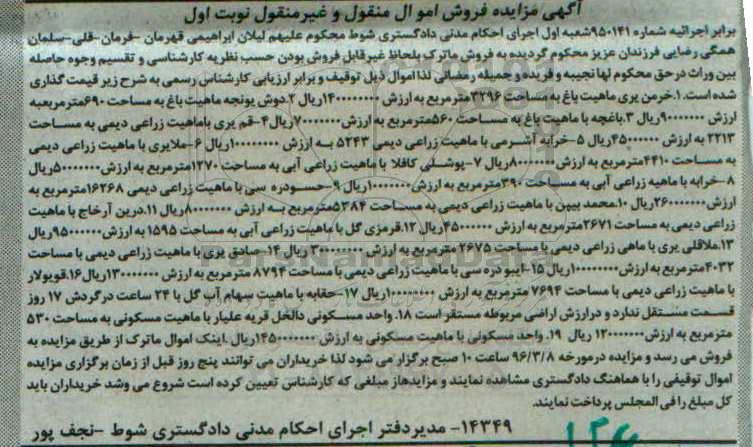 آگهی مزایده فروش اموال منقول و غیرمنقول نوبت اول
برابر اجرائیه شماره ۹۵۰۱۴۱شعبه اول اجرای احکام مدنی دادگستری شوط محکوم علیهم لیلان ابراهیمی قهرمان -فرمان-قلی-سلمان
همگی رضایی فرزندان عزیز محکوم گردیده به فروش ماترک بلحاظ غیرقابل فروش بودن حسب نظریه کارشناسی و تقسیم وجوه حاصله
بین وراث در حق محکوم لها نجیبه و فریده و جمیله رمضانی لذا اموال ذیل توقیف و برابر ارزیابی کارشناس رسمی به شرح زیر قیمت گذاری
شده است. ۱.خرمن یری ماهیت باغ به مساحت ۳۲۹۶مترمربع به ارزش ریال ۲.دوش یونجه ماهیت باغ به مساحت ۶۹۰مترمربعبه
ارزش ریال ۳.باغچه با ماهیت باغ به مساحت ۵۶۰مترمربع به ارزش ریال ۴-قم یری باماهیت زراعی دیمی به مساحت
۲۲۱۳ به ارزش ریال ۵-خرابه آشرمی با ماهیت زراعی دیمی ۵۲۴۳ به ارزش ریال ۶-ملایری با ماهیت زراعی دیمی
به مساحت ۴۴۱۰مترمربع به ارزش ریال ۷-پوشلی کافلا با ماهیت زراعی آبی به مساحت ۱۲۷۰مترمربع به ارزش ریال
۸-خرابه با ماهیه زراعی آبی به مساحت ۳۹۰مترمربع به ارزش ریال ۹-حسودره سی با ماهیت زراعی دیمی به مساحت ۱۶۲۶۸مترمربع به
ارزش ریال ۱۰.محمد بیین با ماهیت زراعی دیمی به مساحت ۵۳۸۴مترمربع به ارزش ریال ۱۱.درین آرخاج با ماهیت
زراعی دیمی به مساحت ۲۶۷۱مترمربع به ارزش ریال ۱۲.قرمزی گل با ماهیت زراعی آبی به مساحت ۱۵۹۵ به ارزش ریال
۱۳.ملاقلی یری با ماهی زراعی دیمی با مساحت ۲۶۷۵مترمربع به ارزش ریال ۱۴-صادق یری با ماهیت زراعی دیمی با مساحت
۴۰۳۲مترمربع به ارزش ریال ۱۵-ایبو دره سی با ماهیت زراعی دیمی با مساحت ۸۷۹۴ مترمربع به ارزش ریال ۱۶.قویولار
با ماهیت زراعی دیمی با مساحت ۷۶۹۴ مترمربع به ارزش ریال ۱۷-حقابه با ماهیت سهام آب گل با ۲۴ ساعت در گردش ۱۷ روز
قسمت مستقل ندارد و در ارزش اراضی مربوطه مستقر است ۱۸. واحد مسکونی دالخل قریه علیار با ماهیت مسکونی به مساحت ۵۳۰
مترمربع به ارزش ریال ۱۹. واحد مسکونی با ماهیت مسکونی به ارزش ریال .اینک اموال ماترک از طریق مزایده به
فروش می رسد و مزایده در مورخه ۹۶/۳/۸ ساعت ۱۰ صبح برگزار می شود لذا خریداران می توانند پنج روز قبل از زمان برگزاری مزایده
اموال توقیفی را با هماهنگ دادگستری مشاهده نمایند و مزایده از مبلغی که کارشناس تعیین کرده است شروع می وشد خریداران باید
کل مبلغ را فی المجلس پرداخت نمایند.
۱۴۳۴۹- مدیر دفتر اجرای احکام مدنی دادگستری شوط -نجف پور